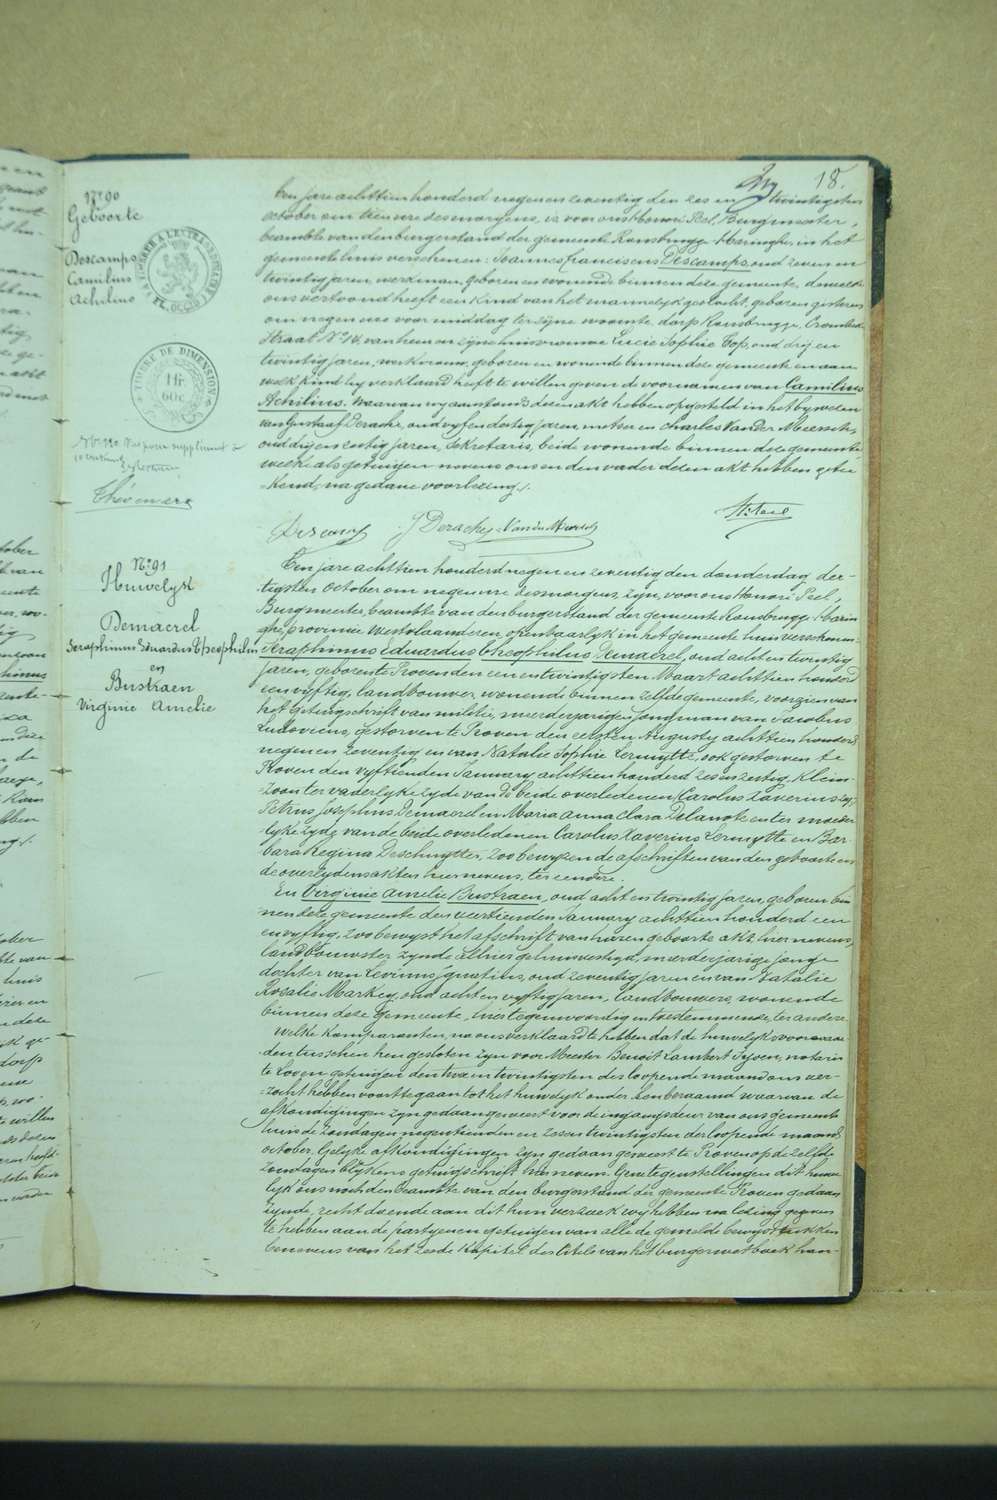 18.
N° 90
Geboorte
Descamps
Camilius
Achilius
TIMBRE DE DIMENSION
1 fr.
60c.
Een jare achttien honderd negen en zeventig den zes en twintigsten
october om tien ure des morgens, is voor ons Honoré Peel, Burgmeester,
beambte van den burgerstand der gemeente Rousbrugge Haringhe, in het
gemeentehuis verschenen: Joannes franciscus Descamps, oud zeven en
twintig jaren, werkman, geboren en wonende binnen deze gemeente, dewelke
ons vertoond heeft een kind van het mannelyk geslacht, geboren gisteren
om negen ure voor middag ter zijne woonste, dorp Rousbrugge, Crombeke
straat N° 14, van hem en zijne huisvrouwe Lucie Sophie Top, oud drij en
twintig jaren, werkvrouw, geboren en wonende binnen deze gemeente en aan
welk kind hy verklaard heeft te willen geven de voornamen van Camilius
Achilius. Waarvan wy aanstonds dezen akt hebben opgesteld in het bywezen
van Gustaaf Derache, oud vyf en dertig jaren, metser en Charles Van Der Meersch,
oud drij en zestig jaren, sekretaris, beide wonende binnen deze gemeente
welke als getuigen nevens ons en den vader dezen akt hebben getee
-kend, na gedane voorlezing.
Descamps G Derache Van der Meersch H. Peel
N° 91
Huwelyk
Demaerel
Seraphinus Eduardus Theophilus
en
Bustraen
Virginie Amelie
Een jare achttien honderd negen en zeventig den donderdag der-
tigsten October om negen ure des morgens, zyn, voor ons Honoré Peel,
Burgmeester, beambte van den burgerstand der gemeente Rousbrugge Harin
ghe, provincie Westvlaanderen, openbaarlyk in het gemeente huis verschenen:
Seraphinus Eduardus Theophilus Demaerel, oud acht en twintig
jaren, geboren te Proven den een en twintigsten Maart achttien honderd
een en vyftig, landbouwer, wonende binnen zelfde gemeente, voorzien van
het getuigschrift van militie, meerderjarigen jongman van Jacobus
Ludovicus, gestorven te Proven den eersten Augusty achttien honderd
negen en zeventig en van Natalie Sophie Lermytte, ook gestorven te
Proven den vyftienden January achttien honderd zes en zestig, klein-
-zoon ter vaderlyke zyde van de beide overledenen Carolus Xaverius
Petrus Josephus Demaerel en Maria Anna Clara Delanote en ter moeder
lyke zyde van de beide overledenen Carolus Xaverius Lermytte en Bar
bara Regina Deschuytter, zoo bewyzen de afschriften van den geboorte en
de overlydens akten hiernevens, ter eendre.
En Virginie Amelie Bustraen, oud acht en twintig jaren, geboren bin
nen deze gemeente den veertienden January achttien honderd een
en vyftig, zoo bewyst het afschrift van haren geboorte akt hier nevens,
landbouwster zynde alhier gehuisvestigd, meerderjarige jonge
dochter van Levinus Ignatius, oud zeventig jaren en van Natalie
Rosalie Markey, oud acht en vyftig jaren, landbouwers, wonende
binnen deze gemeente, hier tegenwoordig en toestemmende, ter andere
Welke komparanten, na ons verklaard te hebben dat de huwelyksvoorwaar
den tusschen hen gesloten zyn voor Meester Benoit Lambert Tyssen, notaris
te Loven getuigen den twee en twintigsten der loopende maand ons ver-
-zocht hebben voort te gaan tot het huwelyk onder hen beraamd waarvan de
afkondigingen zyn gedaan geweest voor de ingangsdeur van ons gemeente
huis de zondagen negentienden en zes en twintigsten der loopende maand
october. Gelyke afkondigingen zyn gedaan geweest te Proven op de zelfde
zondagen blykens getuigschrift hier nevens. Geene tegenstellingen dit huwe
lyk ons noch den beambte van den burgerstand der gemeente Proven gedaan
zynde, recht doende aan dit hun verzoek wy hebben na lezing gegeven
te hebben aan de partyen en getuigen van alle de gemelde bewysstukken
benevens van het zesde kapittel des titels van het burgerwetboek han-